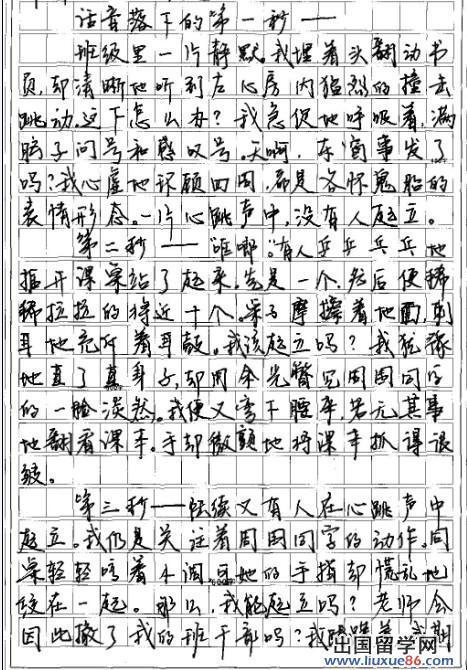 话音落下的第一秒——
班级里一片静默。我埋着头翻动书
页,却清晰地听到左心房内猛烈的撞击
跳动。这下怎么办?我急促地呼吸着,满
脑子问号和感叹号。天啊,东窗事发了
吗?我心虚地环顾四周,都是各怀鬼胎的
表情形态。一片心跳声中,没有人起立。
第二秒——“哐啷”。有人乒乒乓乓地
推开课桌站了起来。先是一个,然后便稀
稀拉拉的将近十个。桌子摩擦着地面,刺
耳地充斥着耳鼓。我该起立吗?我犹豫
地直了直身子,却用余光瞥见周围同学
的一脸淡然。我便又弯下腰来,若无其事
地翻看课本。手却微颤地将课本抓得很
皱。
第三秒——陆续又有人在心跳声中
起立。我仍是关注着周围同学的动作。同
桌轻轻哼着小调,可她的手指却慌乱地
绞在一起。那么,我能起立吗?老师会
因此撤了我的班干部吗?我
出国留学网
www.liuxue86.com